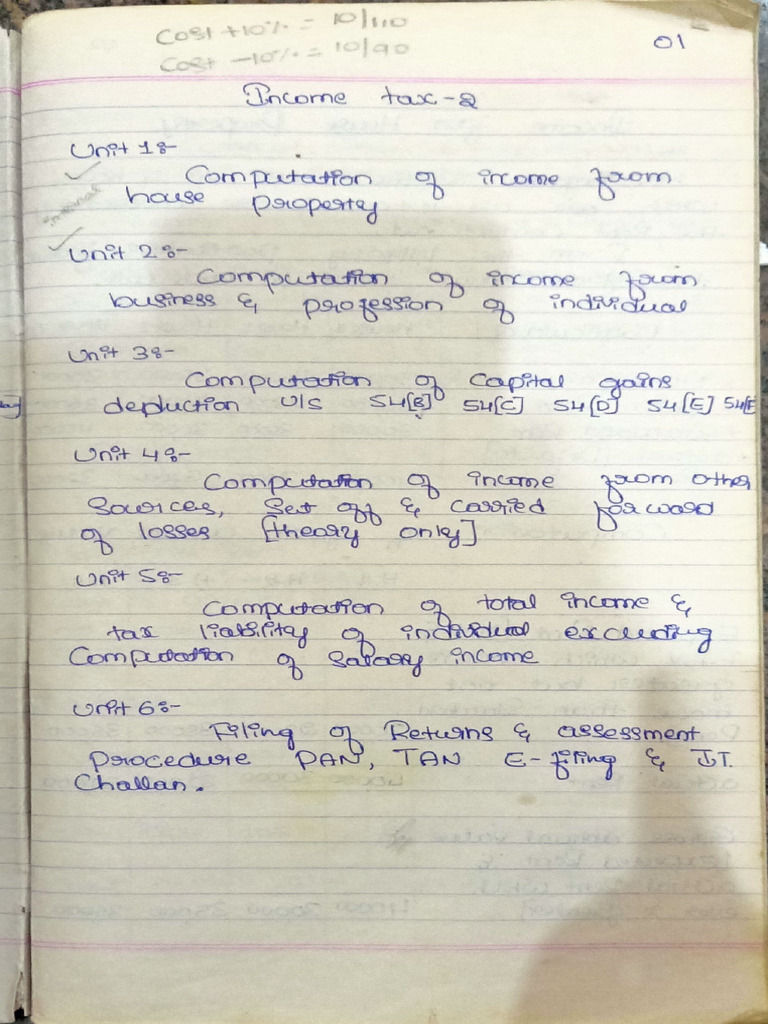 Cost +10% = 10/110
Cost -10% = 10/90
01
Income tax-2
Unit 1:-
Computation of income from
house property
internal
Unit 2:-
Computation of income from
business & profession of individual
Unit 3:-
Computation of Capital gains
deduction U/S 54[B] 54[C] 54[D] 54[E] 54[F
Unit 4:-
Computation of income from other
Sources, Set off & carried forward
of losses [theory only]
Unit 5:-
Computation of total income &
tax liability of individual excluding
Computation of Salary income
Unit 6:-
Filing of Returns & assessment
procedure PAN, TAN E-filing & I.T.
Challan.